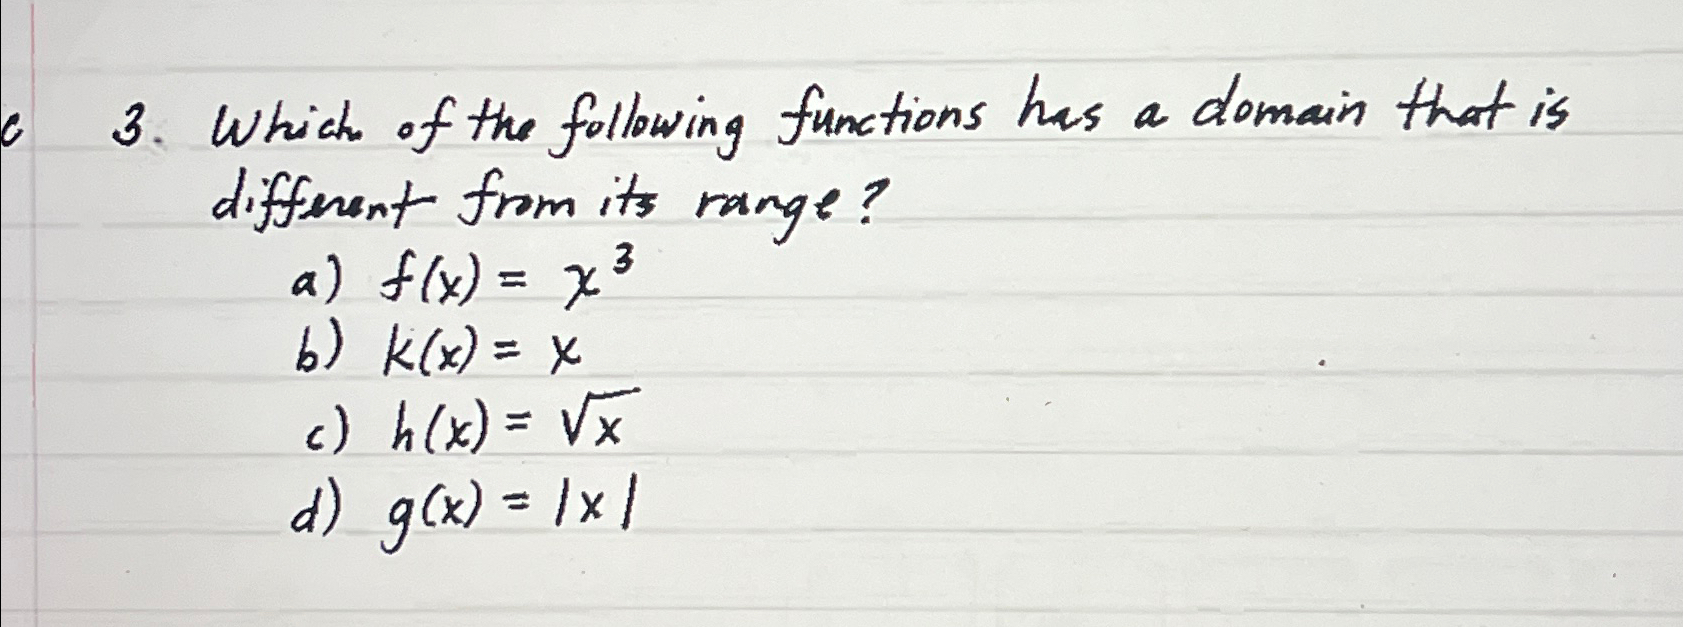 c 3. Which of the following functions has a domain that is
different from its range?
a) f(x) = x³
b) k(x) = x
c) h(x) = √x
d) g(x) = |x|